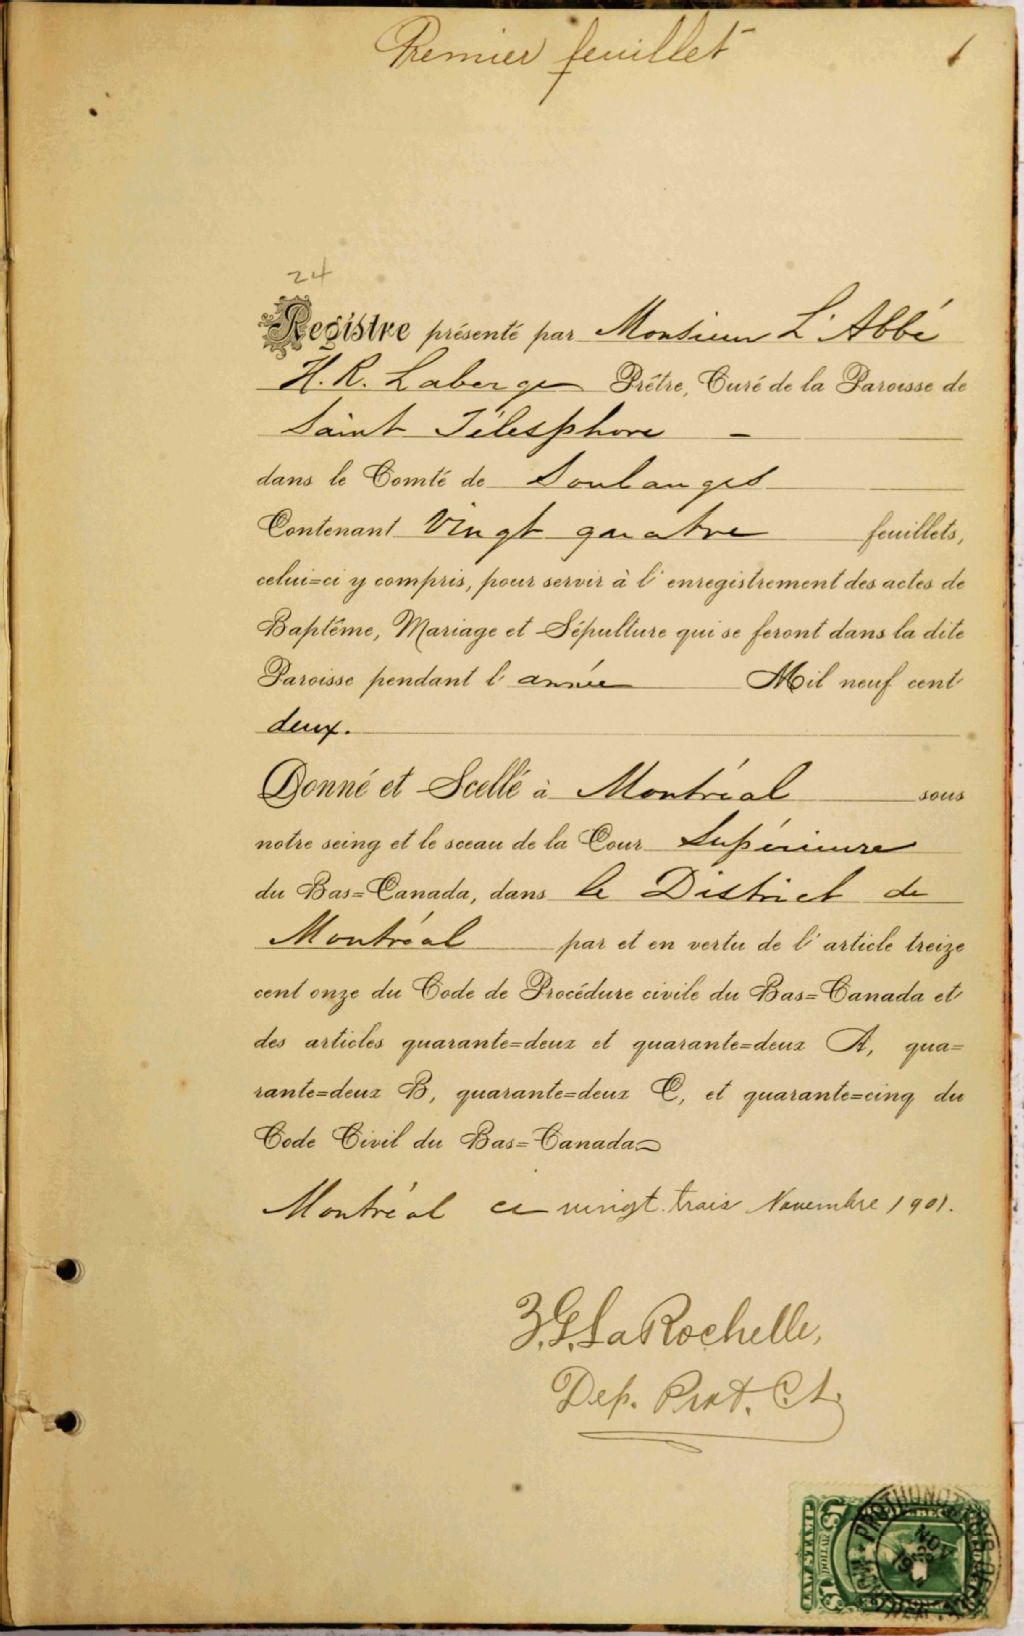 Premier feuillet 1
24
Registre présenté par Monsieur L'Abbé
H. R. Laberge Prêtre, Curé de la Paroisse de
Saint Télesphore –
dans le Comté de Soulanges
Contenant Vingt quatre feuillets,
celui=ci y compris, pour servir à l'enregistrement des actes de
Baptême, Mariage et Sépulture qui se feront dans la dite
Paroisse pendant l'année Mil neuf cent
deux.
Donné et Scellé à Montréal sous
notre seing et le sceau de la Cour Supérieure
du Bas=Canada, dans le District de
Montréal par et en vertu de l'article treize
cent onze du Code de Procédure civile du Bas=Canada et
des articles quarante=deux et quarante=deux A, qua=
rante=deux B, quarante=deux C, et quarante=cinq du
Code Civil du Bas=Canada
Montréal ce vingt trois Novembre 1901.
Z. G. LaRochelle,
Dep. Prot. C.S.
LAW STAMP
$1 DOLLAR $1
NOV